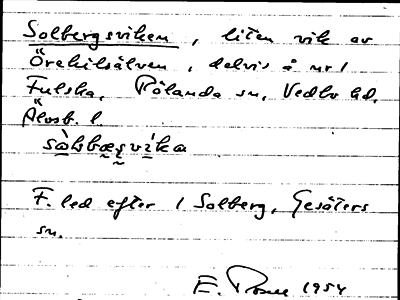 Solbergsviken, liten vik av
Örekilsälven, delvis å nr 1
Fulska, Rölanda sn, Vedbo hd,
Älvsb. l.
sò̀lsbæṣvìka
F. led efter 1 Solberg, Gesäters
sn.
E. 1954